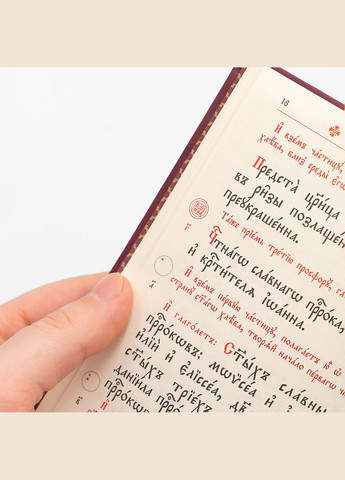 18
И҆ взе́мъ части́цꙋ,
хлѣ́ба, близ̾ среды̀ є҆гѡ̀
Предста̀ цр҃и́ца
въ ри́зы позлаще́н
преꙋкраше́нна.
Та́же прїе́мъ тре́тїю просфорꙋ̀, гл
Чⷭ҇тна́гѡ сла́внагѡ прⷪ҇ро́ка,
и҆ крⷭ҇ти́телѧ і҆ѡа́нна.
И҆ взе́мъ пе́рвꙋю части́цꙋ, полага́етъ ю҆̀ ѡ҆
страны̀ ст҃а́гѡ хлѣ́ба, творѧ́й нача́ло пе́рвагѡ ч
И҆ глаго́летъ: Ст҃ы́хъ сла́вны
прⷪ҇ро́кѡвъ: мѡѷсе́а
и҆лїѝ и҆ є҆лїссе́а, дв҃
ст҃ы́хъ трїе́хъ
данїи́ла прⷪ҇ро́ка
прⷪ҇ро́кѡвъ.